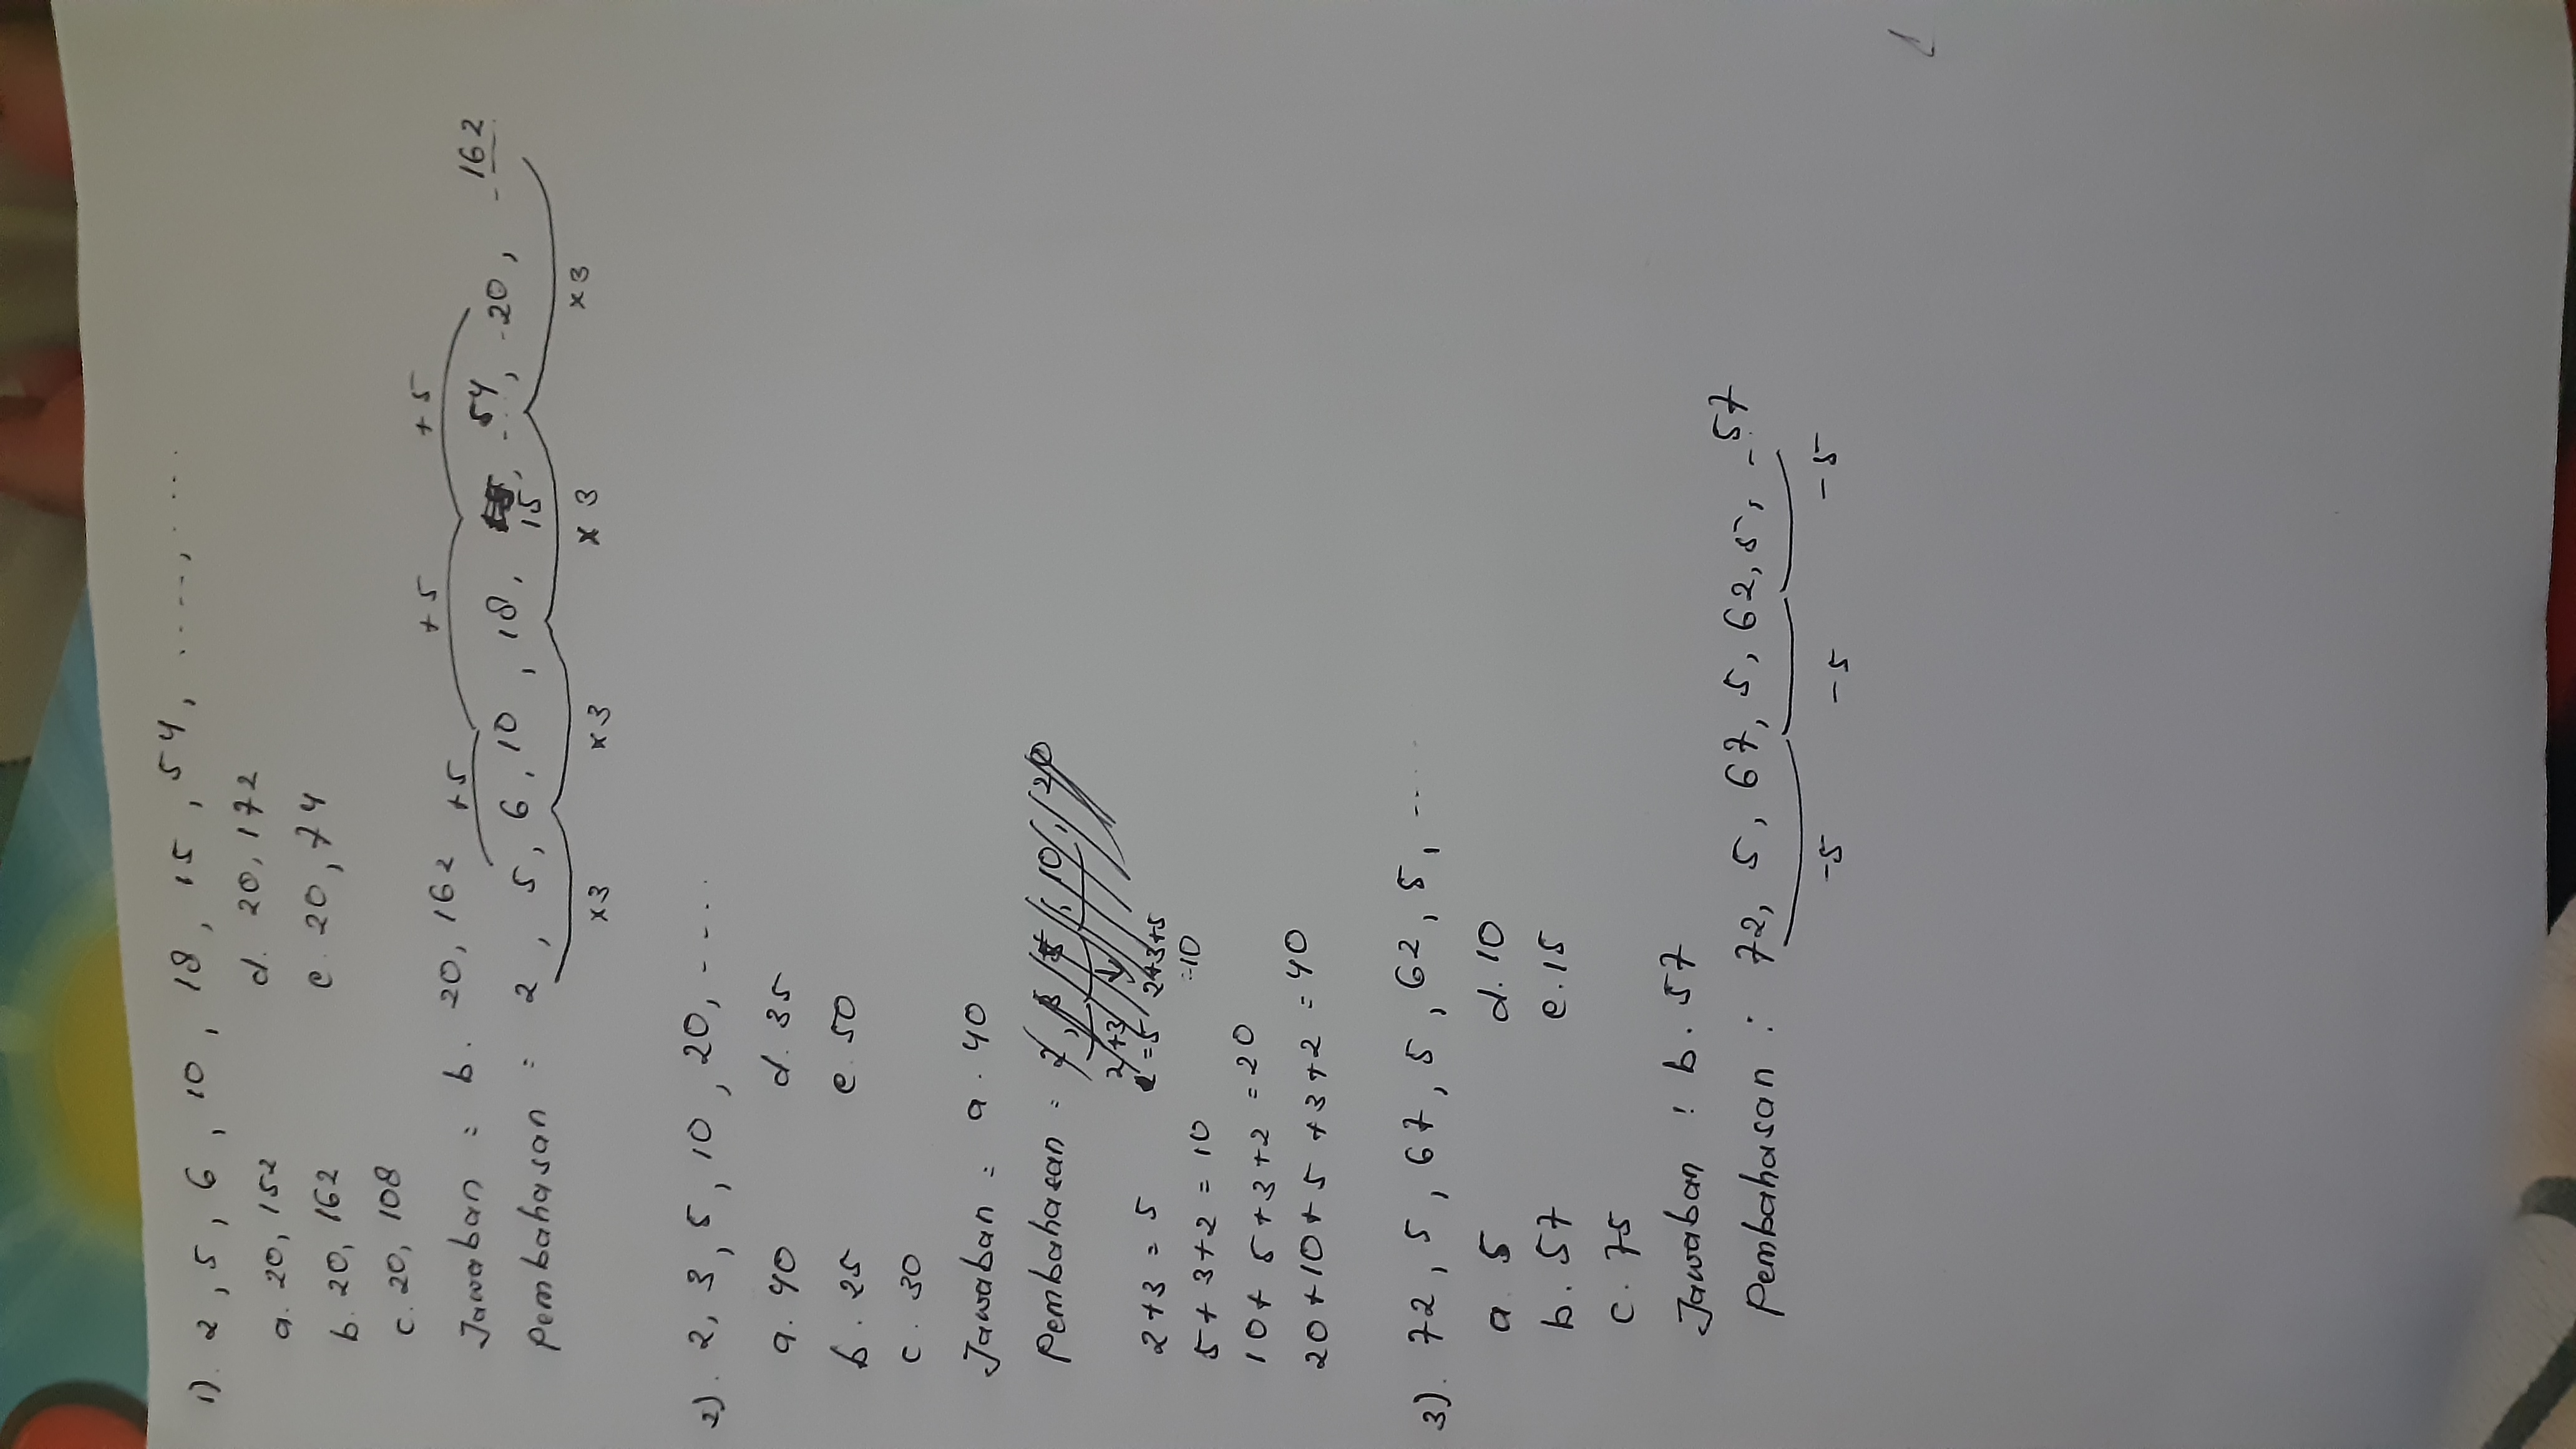 1). 2, 5, 6, 10, 18, 15, 54, ...., ....
a. 20, 152 d. 20, 172
b. 20, 162 e. 20, 74
c. 20, 108
Jawaban = b. 20, 162
+5 +5 +5
Pembahasan = 2, 5, 6, 10, 18, 15, 54, 20, 162
x3 x3 x3 x3
2). 2, 3, 5, 10, 20, ....
a. 40 d. 35
b. 25 e. 50
c. 30
Jawaban = a. 40
Pembahasan =
2+3 = 5
5+3+2 = 10
10+5+3+2 = 20
20+10+5+3+2 = 40
3). 72, 5, 67, 5, 62, 5, ....
a. 5 d. 10
b. 57 e. 15
c. 75
Jawaban : b. 57
Pembahasan : 72, 5, 67, 5, 62, 5, 57
-5 -5 -5